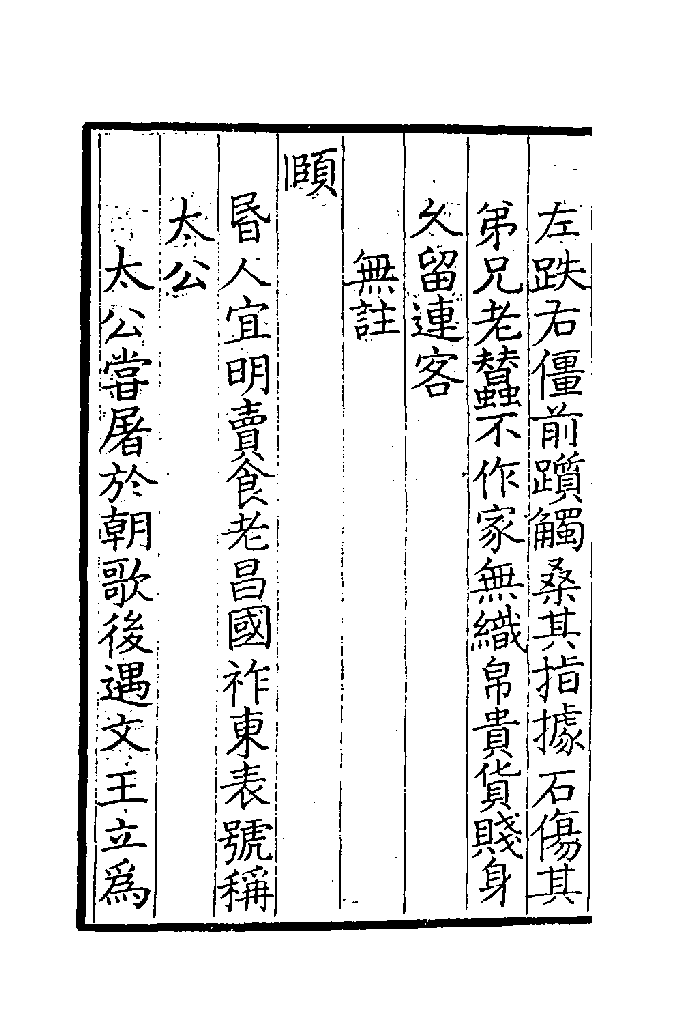 左跌右僵前躓觸桑其指據石傷其
弟兄老蠶不作家無織帛貴貨賤身
久留連客
無註
頤
昬人宜明賣食老昌國祚東表號稱
太公
太公嘗屠於朝歌後遇文王立爲